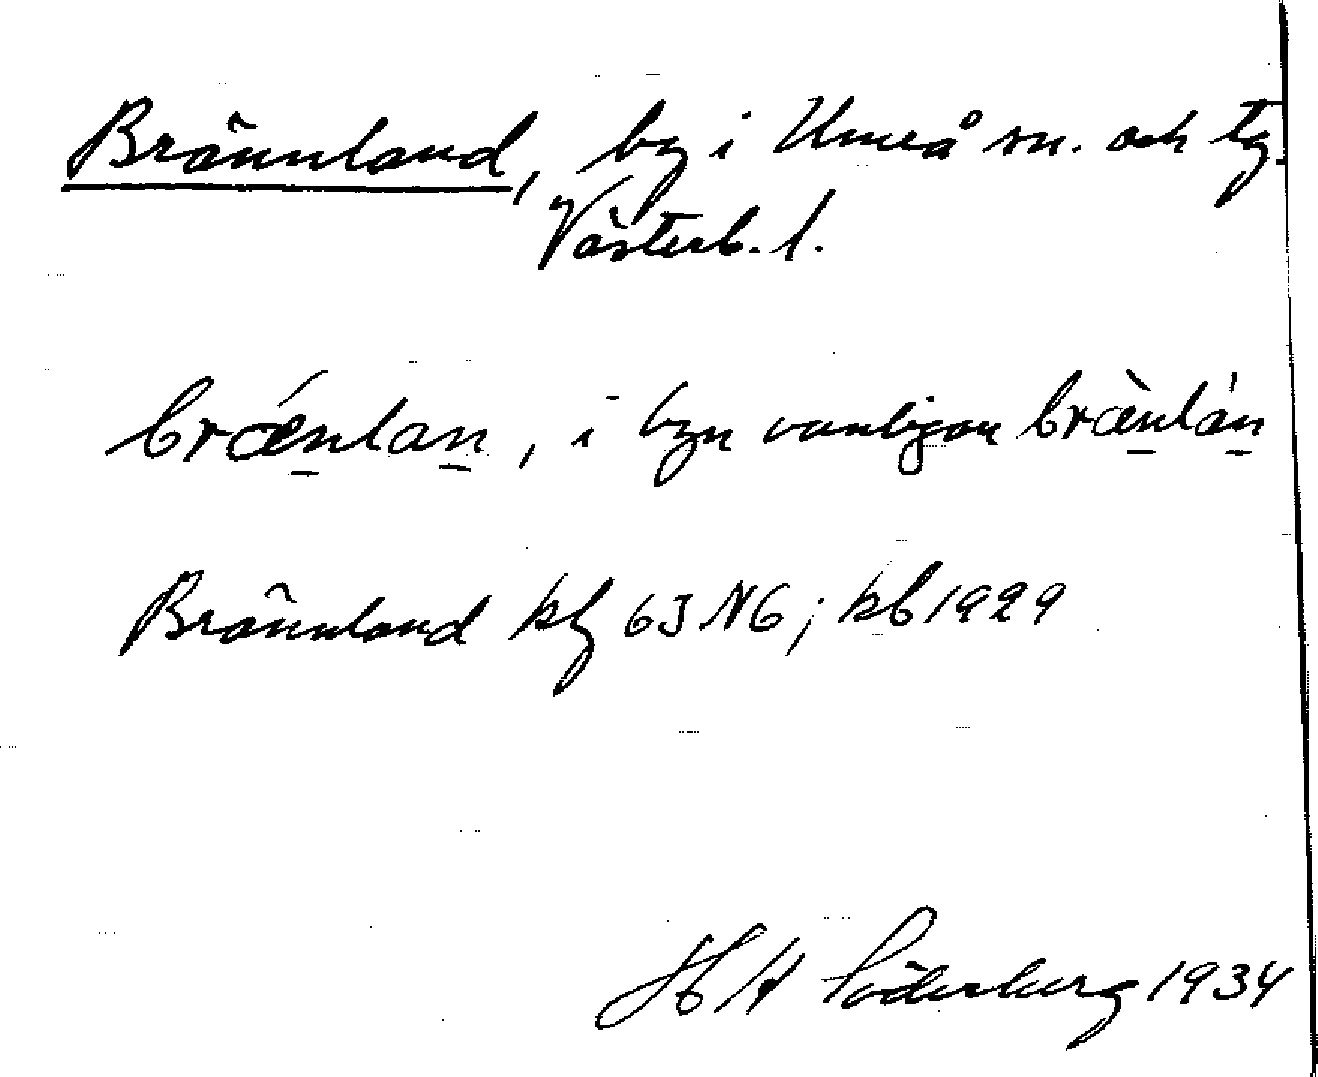 Brännland, by i Umeå sn. och tg.
Västerb. l.
brǽn̲lan̲, i byn vanligan bræ̀n̲lán̲
Brännland kg 63 N6; kb 1929
H W Söderberg 1934